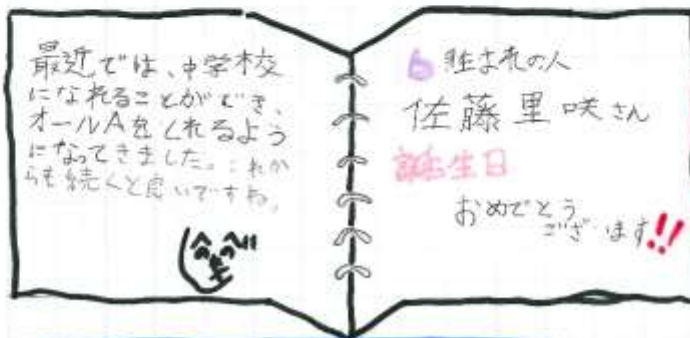 最近では、中学校
になれることができ、
オールAをとれるよう
になってきました。これか
らも続くと良いですね。
6 生まれの人
佐藤里咲さん
誕生日
おめでとう
ございます!!